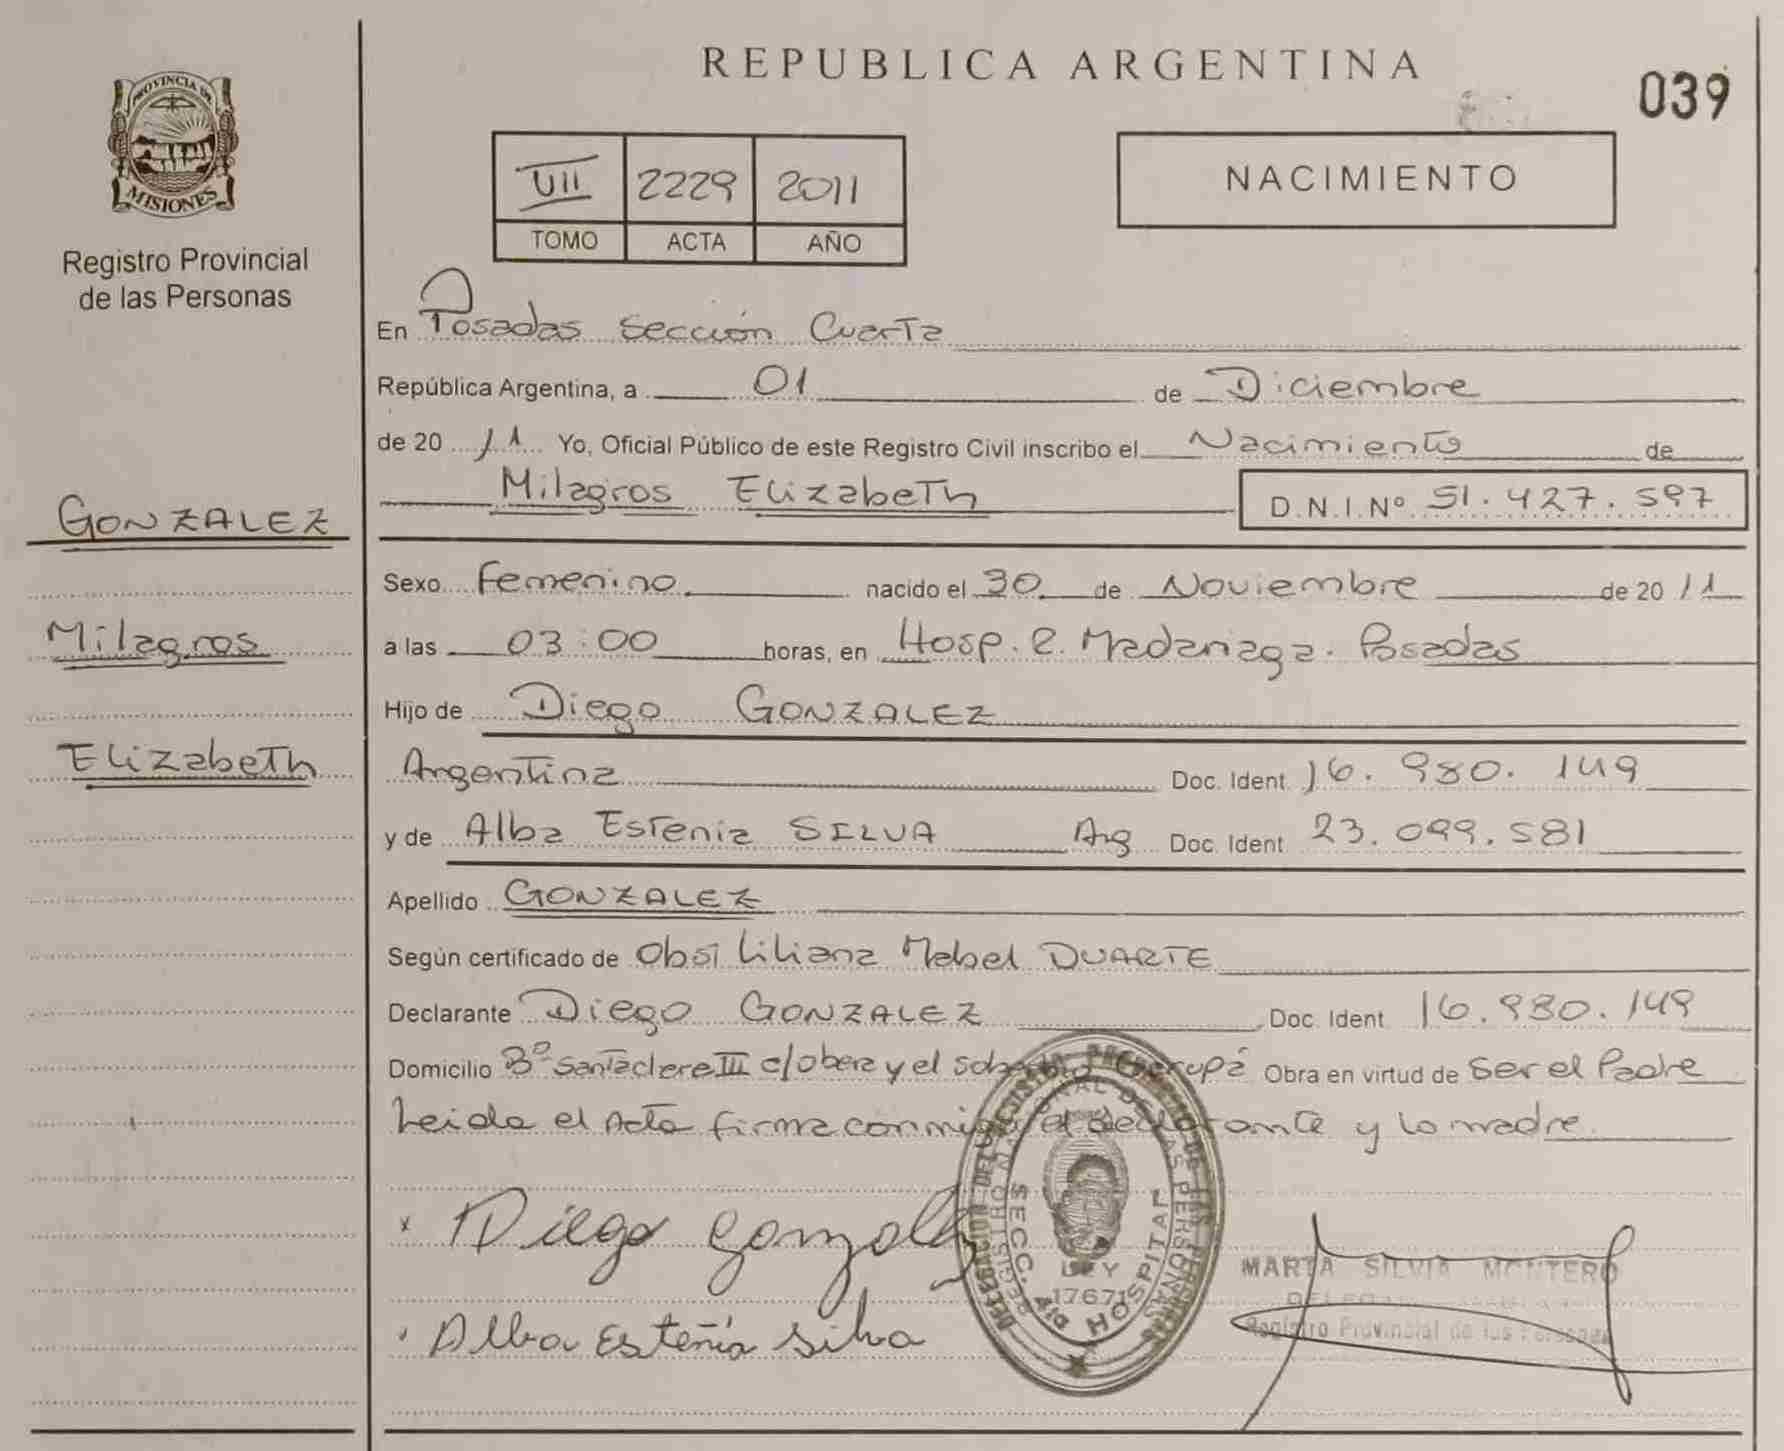 REPUBLICA ARGENTINA
039
PROVINCIA DE
MISIONES
Registro Provincial
de las Personas
VII 2229 2011
TOMO ACTA AÑO
NACIMIENTO
En Posadas Sección Cuarta
República Argentina, a 01 de Diciembre
de 20 11 Yo, Oficial Público de este Registro Civil inscribo el Nacimiento de
Milagros Elizabeth D.N.I.Nº 51.427.597
GONZALEZ
Milagros
Elizabeth
Sexo Femenino nacido el 30 de Noviembre de 20 11
a las 03:00 horas, en Hosp. R. Madariaga. Posadas
Hijo de Diego GONZALEZ
Argentina Doc. Ident 16.980.149
y de Alba Estenia SILVA Arg Doc. Ident 23.099.581
Apellido GONZALEZ
Según certificado de Obst Liliana Mabel DUARTE
Declarante Diego GONZALEZ Doc. Ident 16.980.149
Domicilio Bº Santa clara III c/obera y el soberbio Garupá Obra en virtud de Ser el Padre
Leida el Acta firma conmigo el declarante y la madre
Diego Gonzalez
Alba Estenia Silva
REGISTRO NACIONAL DE LAS PERSONAS
SECC. 4ta HOSPITAL
LEY
17671
MARTA SILVIA MONTERO
Registro Provincial de las Personas